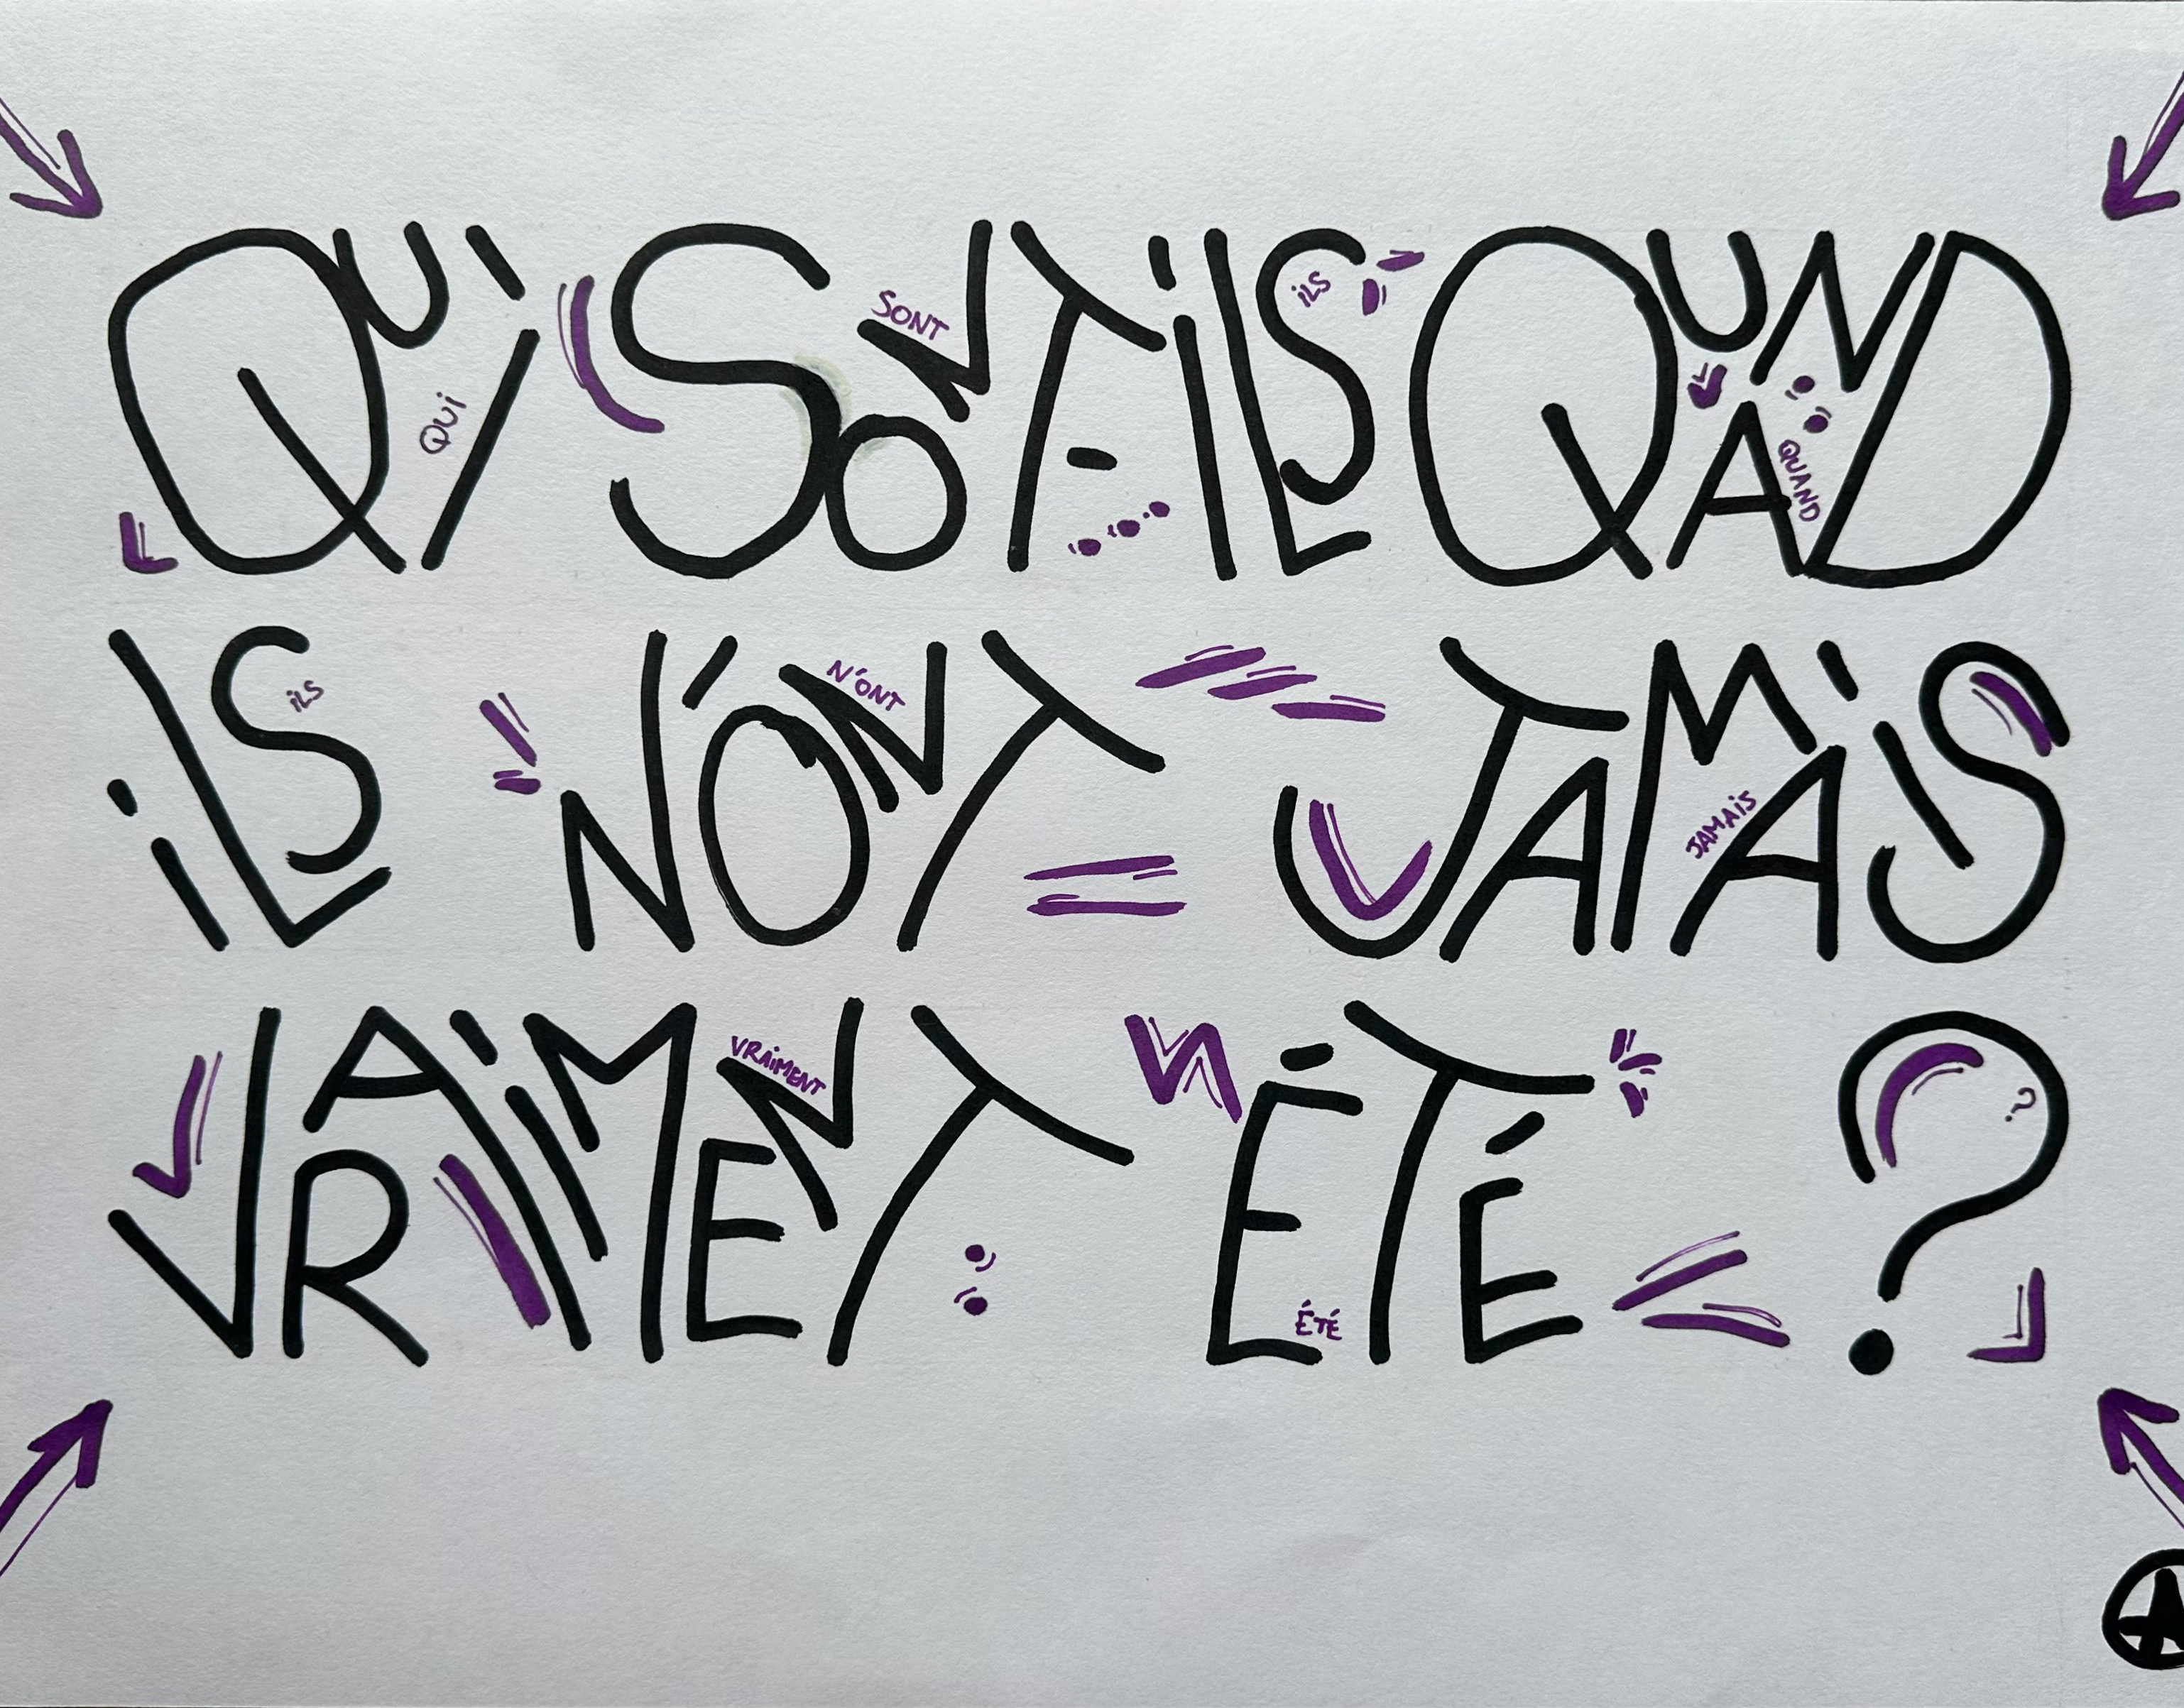 QUi SONT-iLS QUAND
QUi SONT iLS QUAND
iLS N'ONT JAMAiS
iLS N'ONT JAMAiS
VRAiMENT ÉTÉ ?
VRAiMENT ÉTÉ ?
A